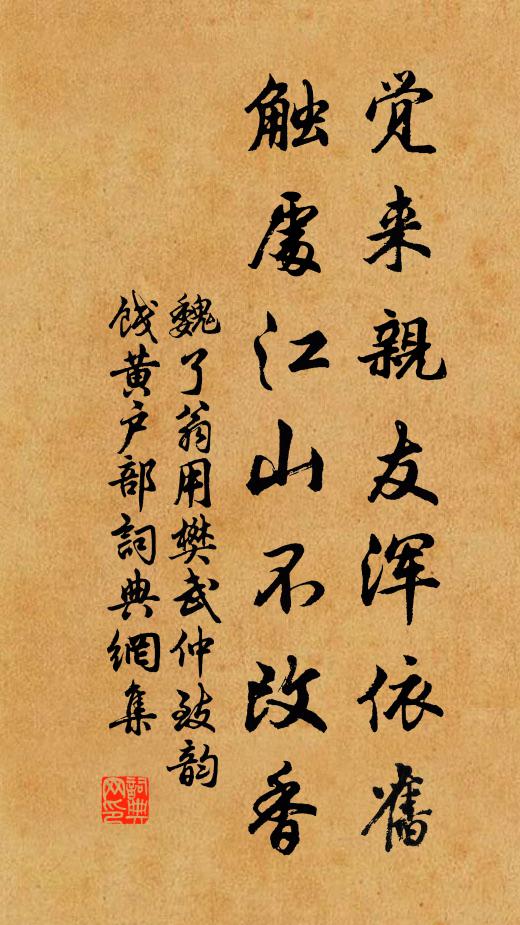 觉来親友浑依舊
触處江山不改香
魏了翁用樊武仲致韵
饯黄户部詞典網集
詞典网印